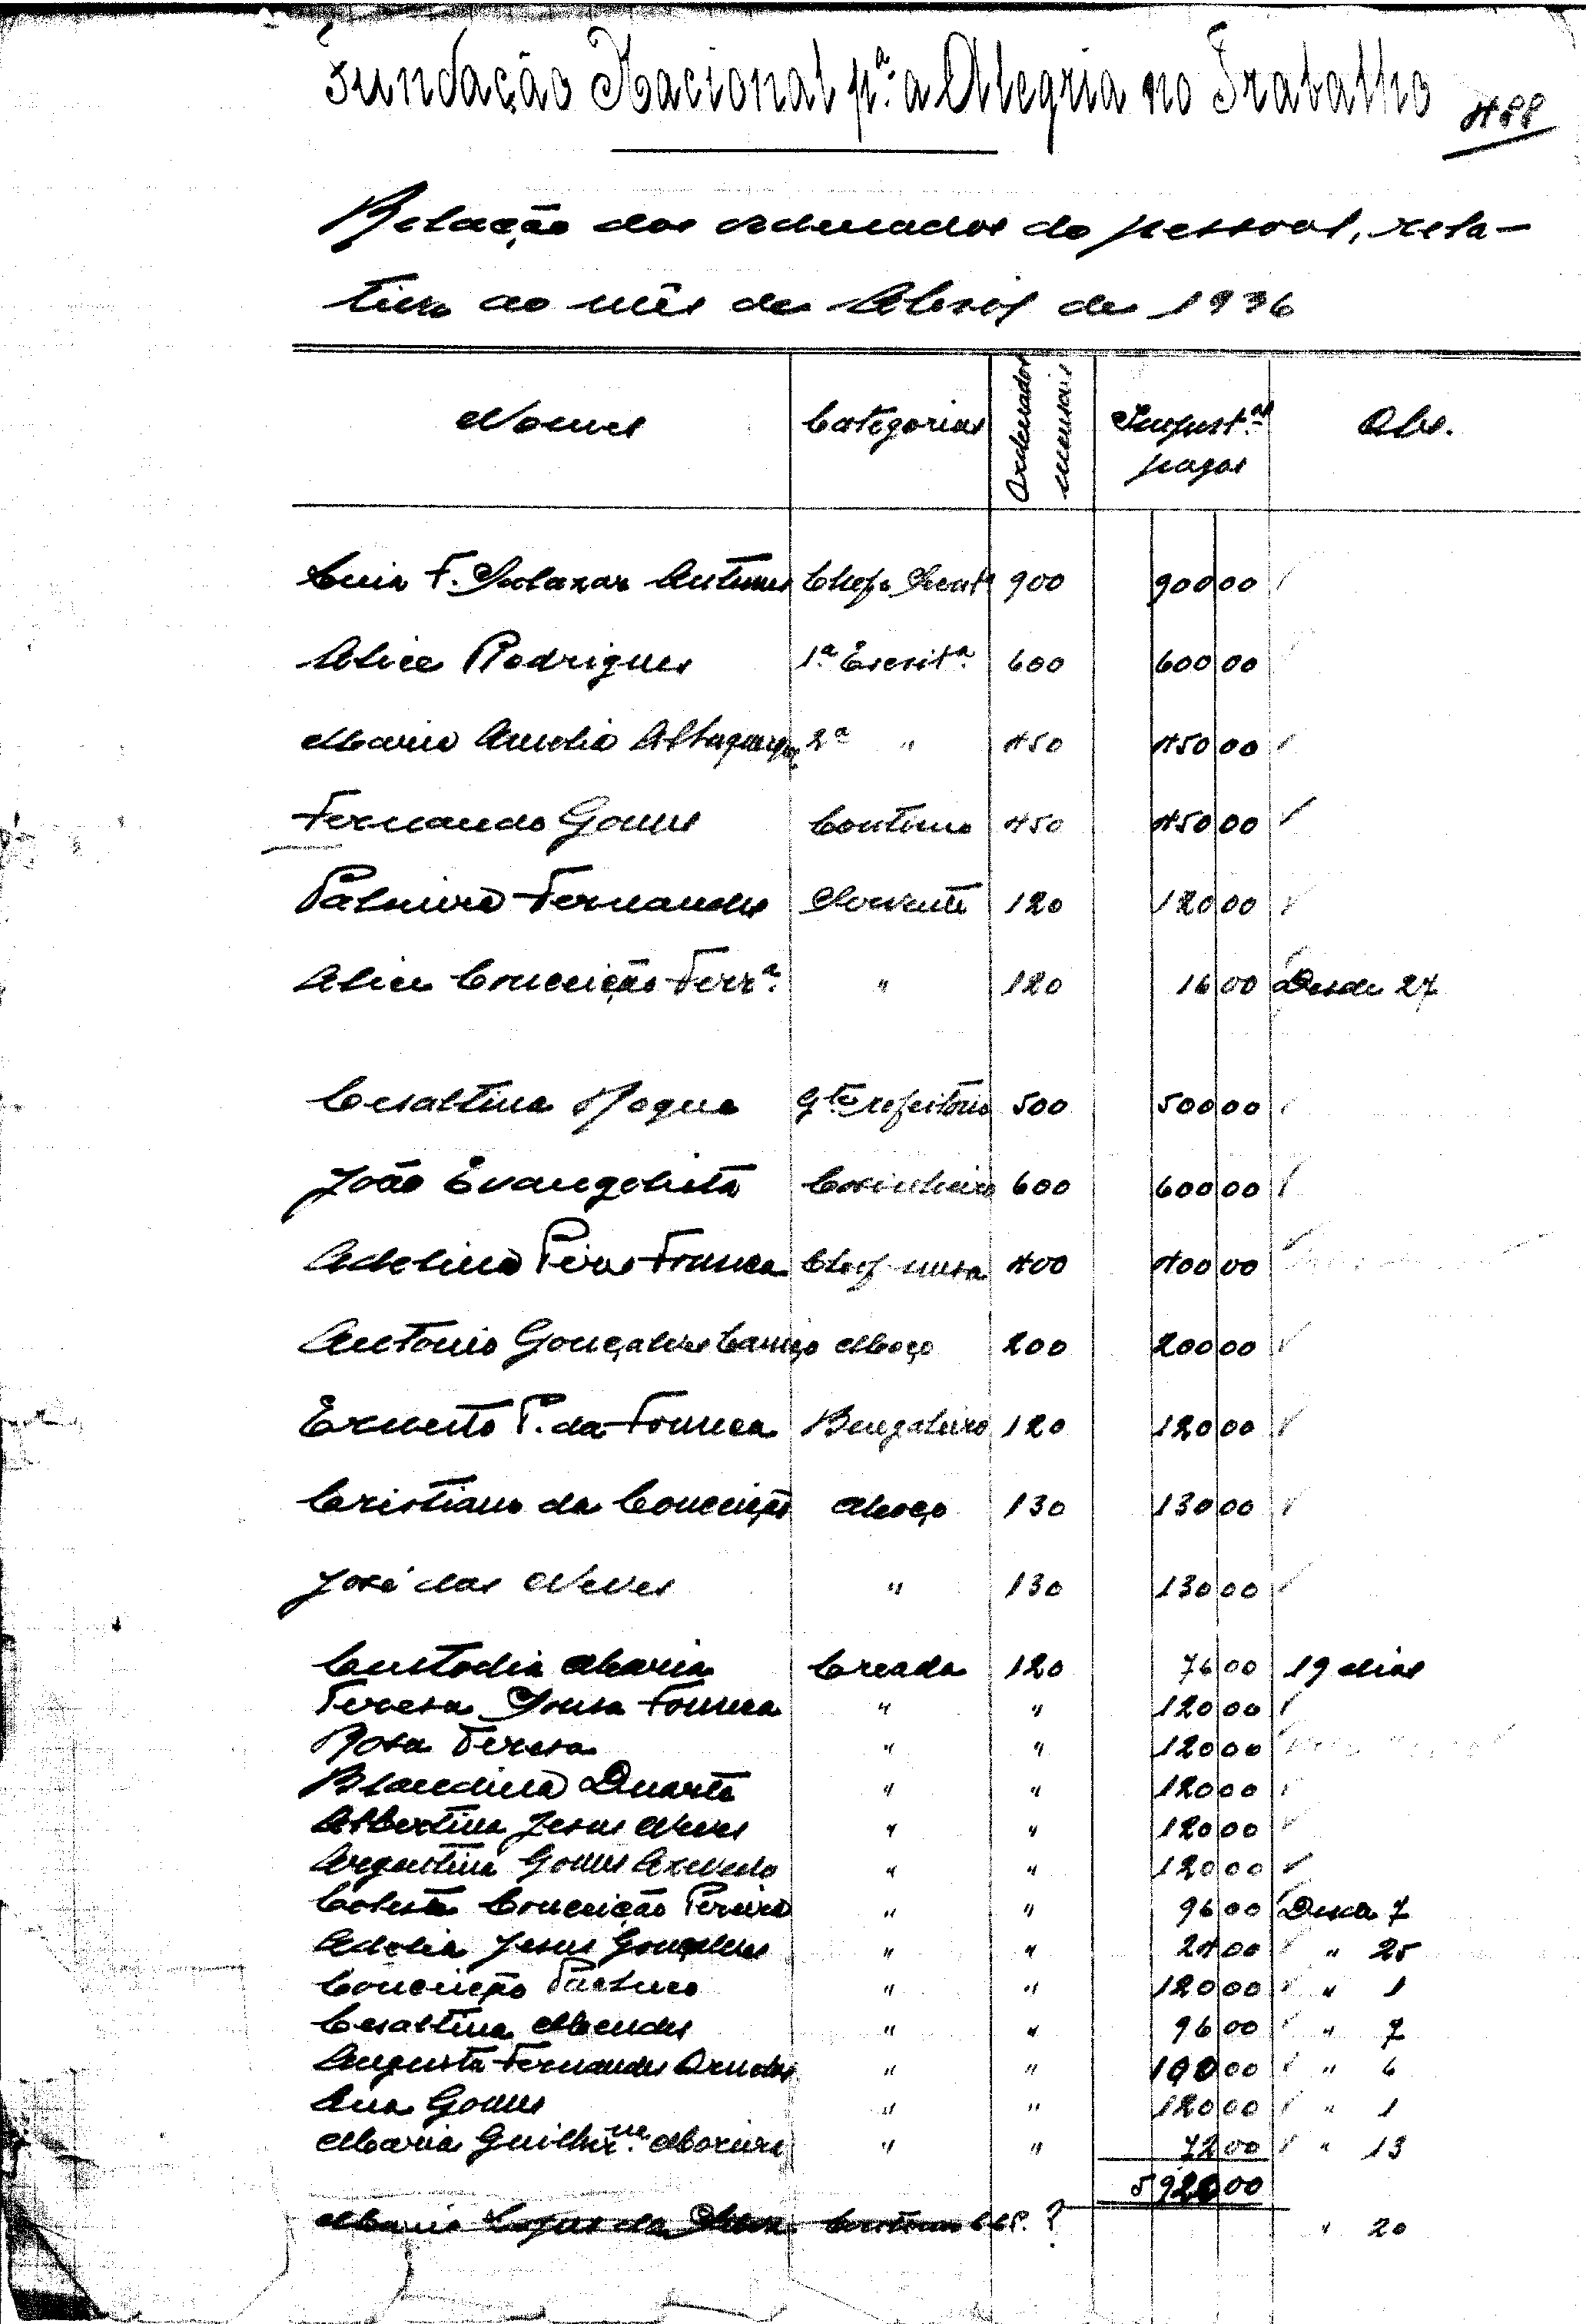 Fundação Nacional pª a Alegria no Trabalho 488
Relação dos ordenados do pessoal, rela-
tiva ao mês de Abril de 1936
Nomes Categorias Ordenados mensais Import.as pagas Obs.
Luis F. Salazar Antunes Chefe Secretª 900 900 00
Alice Rodrigues 1ª Escritª 600 600 00
Maria Amelia 2ª " 450 450 00
Fernando Gomes Continuo 450 450 00
Palmira Fernandes Servente 120 120 00
Alice Conceição Ferrª " 120 16 00 Desde 27
Cesaltina Roque Gte refeitório 500 500 00
João Evangelista Cosinheiro 600 600 00
Adelina Pires Fonseca Chefe mesa 400 400 00
Antonio Gonçalves Moço 200 200 00
Ernesto P. da Fonseca Bengaleiro 120 120 00
Cristiano da Conceição Moço 130 130 00
José das Neves " 130 130 00
Custodia Maria Creada 120 76 00 19 dias
Teresa Sousa Fonseca " " 120 00
Rosa Teresa " " 120 00
Blandina Duarte " " 120 00
Albertina Jesus Neves " " 120 00
Argentina Gomes Azevedo " " 120 00
Celeste Conceição Pereira " " 96 00 Desde 7
Adelia Jesus Gonçalves " " 24 00 " 25
Conceição Pacheco " " 120 00 " 1
Cesaltina Mendes " " 96 00 " 7
Augusta Fernandes Ornelas " " 100 00 " 6
Ana Gomes " " 120 00 " 1
Maria Guilhne Moreira " " 72 00 " 13
5 920 00
Maria da ? " 20